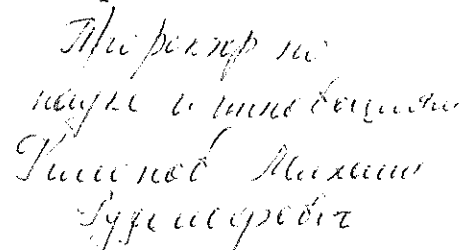 Проректор по
науке и инновациям
Филонов Михаил
Рудольфович